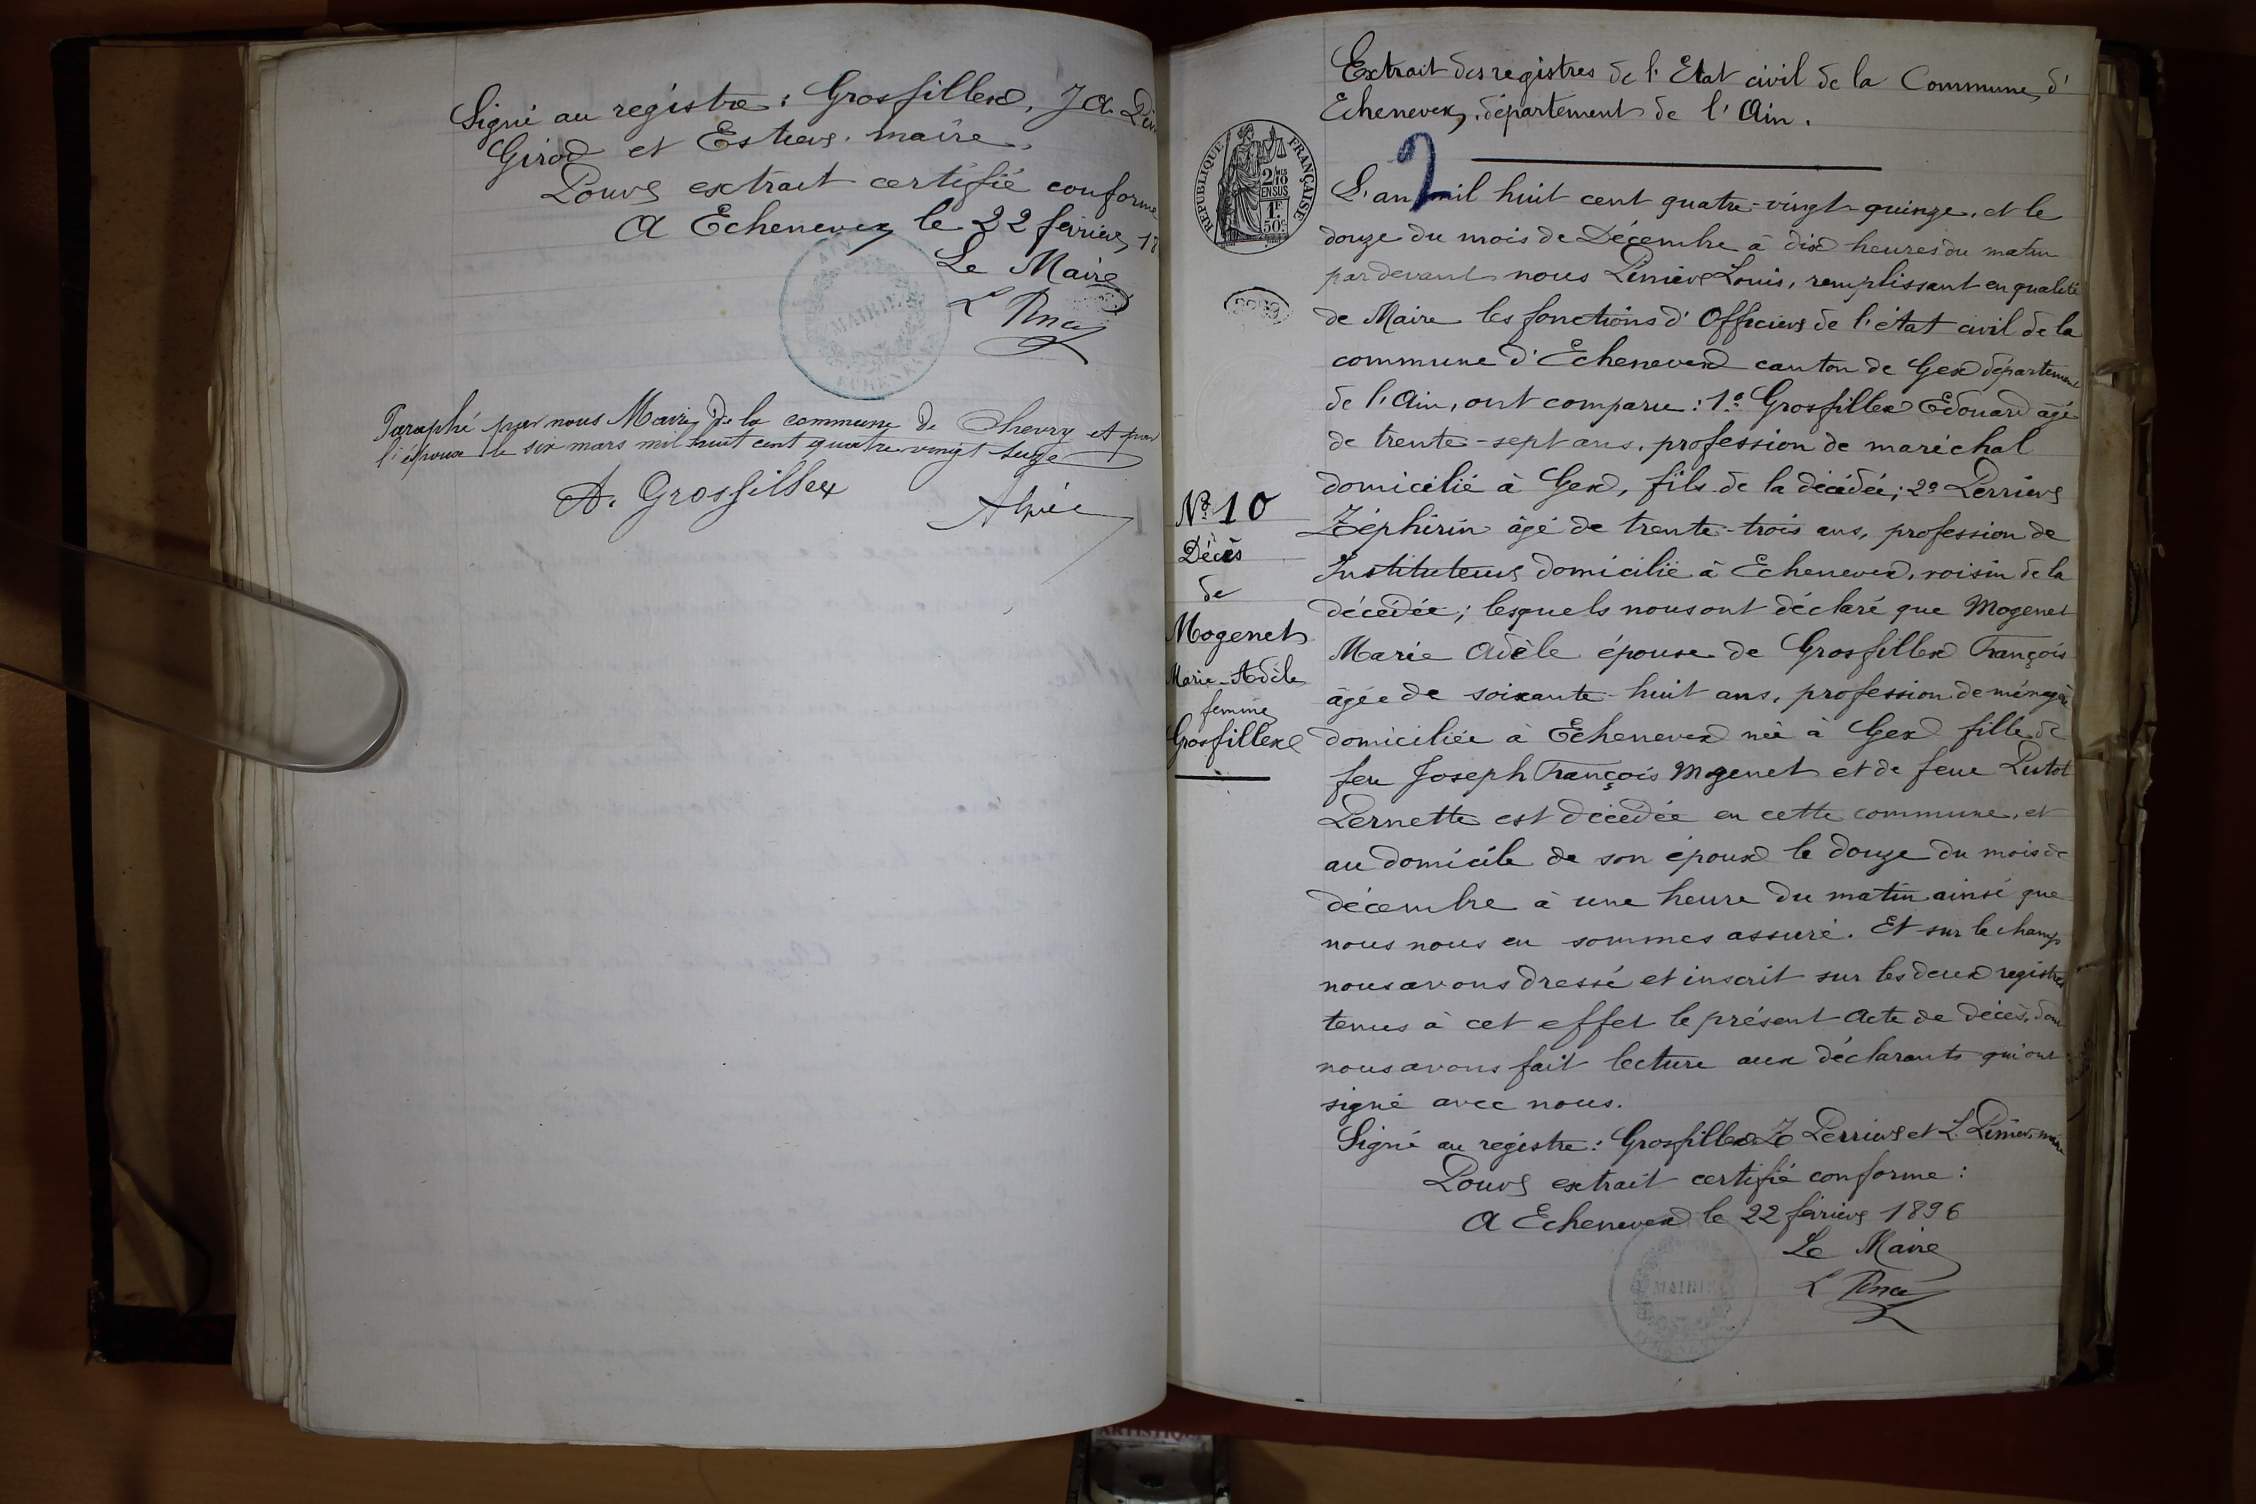 Signé au registre : Grosfillex, J A.
Girod et Estier. maire.
Pour extrait certifié conforme
A Echenevex le 22 février, 18
Le Maire
MAIRIE
Paraphé par nous Maire de la commune de Chevry et par
l'époux le six mars mil huit cent quatre vingt seize
A. Grosfillex
Extrait des registres de l'Etat civil de la Commune d'
Echenevex, département de l'Ain.
2
RÉPUBLIQUE FRANÇAISE
2/10
EN SUS
1F
50c
L'an mil huit cent quatre-vingt-quinze, et le
douze du mois de Décembre à dix heures du matin
par devant nous Périnier Louis, remplissant en qualité
de Maire les fonctions d'Officier de l'état civil de la
commune d'Echenevex canton de Gex département
de l'Ain, ont comparu : 1º Grosfillex Edouard âgé
de trente-sept ans, profession de maréchal
domicilié à Gex, fils de la décédée; 2º Perrier
Zéphirin âgé de trente-trois ans, profession de
Instituteur domicilié à Echenevex, voisin de la
décédée; lesquels nous ont déclaré que Mogenet
Marie Adèle épouse de Grosfillex François
âgée de soixante-huit ans, profession de ménagère
domiciliée à Echenevex née à Gex fille de
feu Joseph François Mogenet et de feue Lutot
Pernette est décédée en cette commune, et
au domicile de son époux le douze du mois de
décembre à une heure du matin ainsi que
nous nous en sommes assuré. Et sur le champ
nous avons dressé et inscrit sur les deux registres
tenus à cet effet le présent Acte de décès, dont
nous avons fait lecture aux déclarants qui ont
signé avec nous.
Signé au registre : Grosfillex Z Perrier et L. maire
Pour extrait certifié conforme :
A Echenevex le 22 février 1896
Le Maire
MAIRIE
Nº 10
Décès
de
Mogenet
Marie-Adèle
femme
Grosfillex